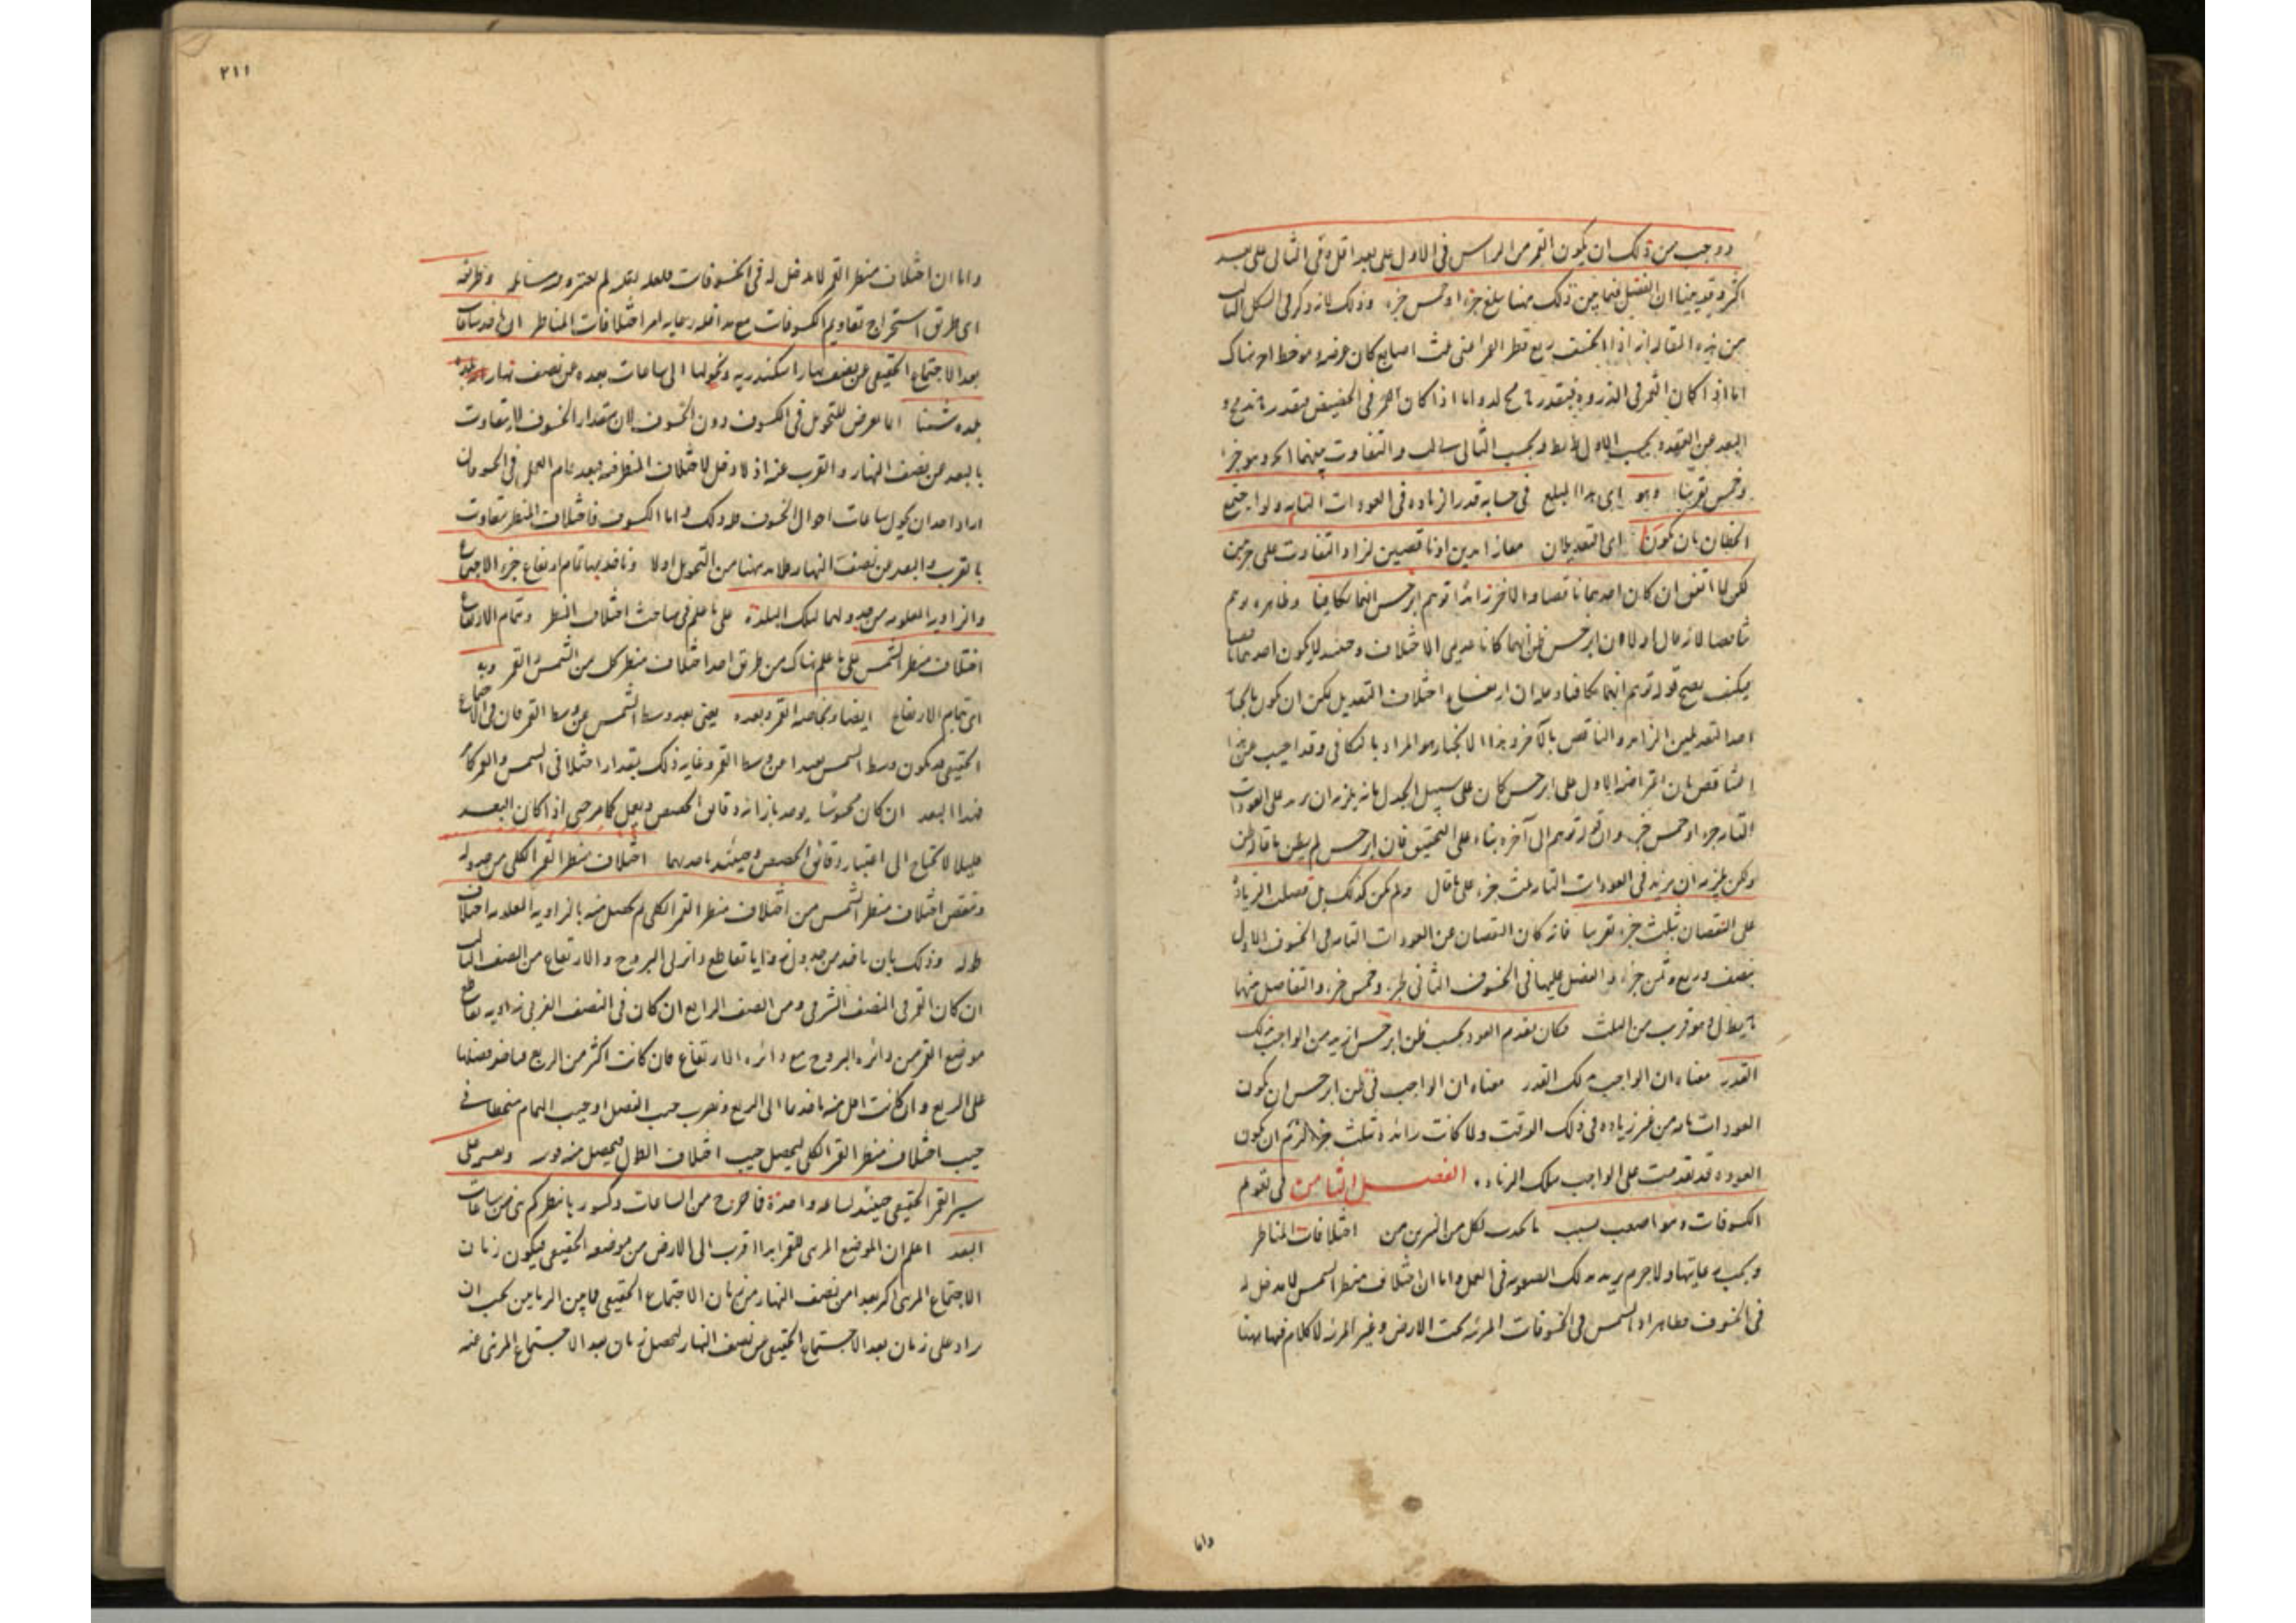 ووجب من ذلك ان يكون القمر من الراس فى الاول على بعد اقل وفى الثانى على بعد
اكثر وقد بينا ان الفضل فيما بين ذلك منها يبلغ جزءا وخمس جزء وذلك لانه ذكر فى الشكل
من هذه المقالة انه اذا انخسف ربع قطر القمر اعنى ثلث اصابع كان عرضه هناك
اما اذا كان القمر فى الذروة فبقدر واما اذا كان القمر فى الحضيض فبقدر
البعد عن العقدة بحسب الاول وبحسب الثانى والتفاوت بينهما وهو جزء
وخمس تقريبا وهو اى هذا المبلغ فى حسابه قدر الزيادة فى العودات التامة ولو اجتمع
الخطآن بان يكونا اى التعديلان معا زايدين او ناقصين لزاد التفاوت على جزئين
لكن لما اتفق ان كان احدهما ناقصا والاخر زائدا توهم ابرخس انهما تكافيا وظاهره وهم
لانه قال اولا ان ابرخس ظن انهما كانا عديمى الاختلاف وحينئذ لا يكون احدهما
فكيف يصح قوله توهم انهما تكافيا اختلاف التعديل يمكن ان يكون
احد التعديلين الزايد والناقص بالآخر وهذا هو المراد بالتكافى وقد اجيب عن هذا
التناقض بان اعتراضه الاول على ابرخس كان على سبيل الجدل بانه يلزمه ان يزيد على العودات
التامة جزء او خمس جزء توهم الى آخره بناء على التحقيق فان ابرخس لم يظن
ولكن يلزمه ان يزيد فى العودات التامة ثلث جزء على ما قال ولم يكن كذلك بل فضلت الزيادة
على النقصان بثلث جزء تقريبا فانه كان النقصان عن العودات التامة فى الخسوف الاول
بنصف وربع وثمن جزء والفضل عليها فى الخسوف الثانى بجزء وخمس جزء والتفاضل منهما
وهو قريب من الثلث فكان تقدم العود بحسب ظن ابرخس ازيد من الواجب بذلك
القدر معناه ان الواجب ذلك القدر معناه ان الواجب فى ظن ابرخس ان يكون
العودات تامة من غير زيادة فى ذلك الوقت ولما كانت زائدة بثلث جزء لزم ان يكون
العودة قد تقدمت على الواجب بتلك الزيادة الفصل الثامن فى تقويم
الكسوفات وهو اصعب بسبب ما يحدث لكل من النيرين من اختلافات المناظر
ويجب رعايتها ولا جرم يزيد ذلك الصعوبة فى العمل واما ان اختلاف منظر الشمس لا مدخل له
فى الخسوف فظاهر اذ الشمس فى الخسوفات المرئية تحت الارض وغير المرئية لا كلام فيها هنا
واما
٢١١
واما ان اختلاف منظر القمر لا مدخل له فى الخسوفات وطريقه
اى طريق استخراج تقاويم الكسوفات مع اختلافات المناظر ان ناخذ ساعات
بعد الاجتماع الحقيقى عن نصف نهار اسكندرية ونحولها الى ساعات بعده عن نصف نهار
بلدة شئنا انما تعرض للتحويل فى الكسوف دون الخسوف لان مقدار الخسوف لا يتفاوت
بالبعد عن نصف النهار والقرب عنه اذ لا دخل لاختلاف المنظر فيه فبعد تمام العمل فى الخسوفات
اراد احد ان يحول ساعات احوال الخسوف فله ذلك واما الكسوف فاختلاف المنظر متفاوت
بالقرب والبعد عن نصف النهار فلا بد ههنا من التحويل اولا وناخذ بها تمام ارتفاع جزء الاجتماع
والزاوية المعلومة من جدولهما لتلك البلدة على ما علم فى مباحث اختلاف المنظر وتمام الارتفاع
اختلاف منظر الشمس على ما علم هناك من طريق اخذ اختلاف منظر كل من الشمس والقمر وبه
اى بتمام الارتفاع ايضا وبخاصة القمر وبعده يعنى بعد وسط الشمس عن وسط القمر فان فى الاجتماع
الحقيقى قد يكون وسط الشمس بعيدا عن وسط القمر وغاية ذلك بقدار اختلافى الشمس والقمر
فهذا البعد ان كان محسوسا يوخذ بازائه دقائق الحصص ويعمل كما مر حتى اذا كان البعد
قليلا لا يحتاج الى اعتبار دقائق الحصص وحينئذ ناخذ بهما اختلاف منظر القمر الكلى من جدوله
وننقص اختلاف منظر الشمس من اختلاف منظر القمر الكلى ثم نحصل منه بالزاوية المعلومة اختلاف
طوله وذلك بان ناخذ من جدول زوايا تقاطع دائرتى البروج والارتفاع من الصف الثالث
ان كان القمر فى النصف الشرقى ومن الصف الرابع ان كان فى النصف الغربى زاوية تقاطع
موضع القمر من دائرة البروج مع دائرة الارتفاع فان كانت اكثر من الربع فناخذ فضلها
على الربع وان كانت اقل منه ناخذ تمامها الى الربع ونضرب جيب الفضل او جيب التمام منحطا فى
جيب اختلاف منظر القمر الكلى ليحصل جيب اختلاف الطول فيحصل منه قوسه ونقسمه على
سير القمر الحقيقى حينئذ لساعة واحدة فما خرج من الساعات وكسورها ننظر كم هى من ساعات
البعد اعلم ان الموضع المرئى للقمر ابدا اقرب الى الارض من موضعه الحقيقى فيكون زمان
الاجتماع المرئى اكثر بعدا من نصف النهار من زمان الاجتماع الحقيقى فما بين الزمانين يجب ان
يزاد على زمان بعد الاجتماع الحقيقى عن نصف النهار ليحصل زمان بعد الاجتماع المرئى عنه